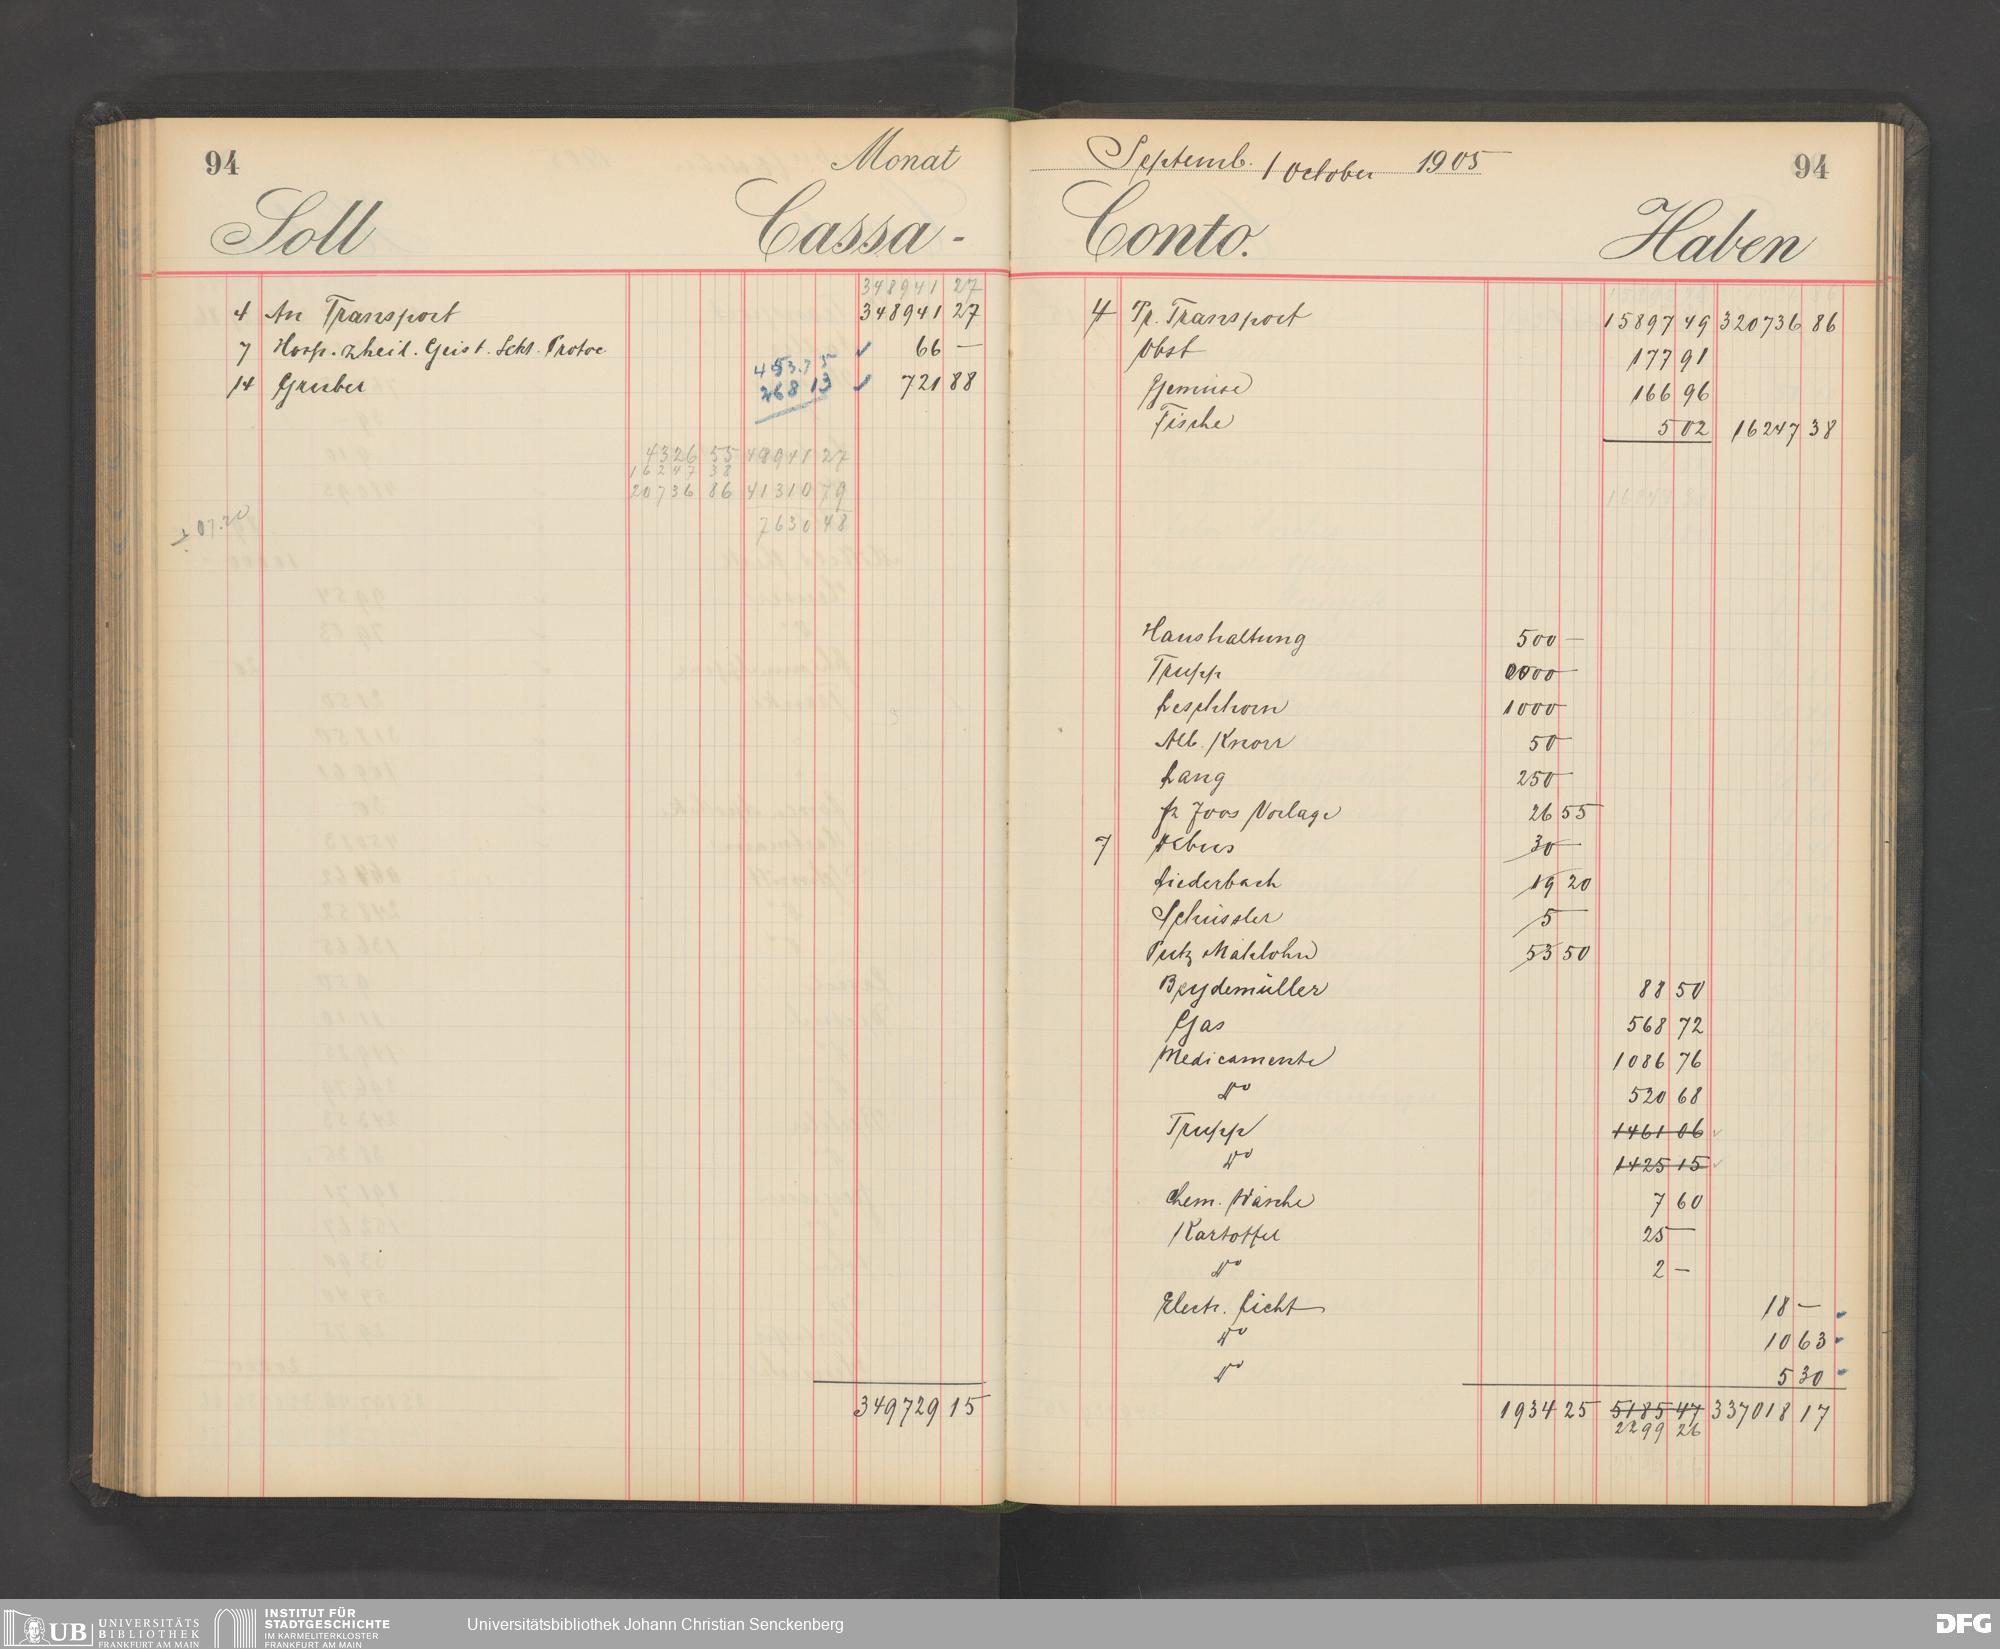 94
Monat
Soll
Cassa-
348941 27
4 An Transport 348941 27
7 Hosp. z heil. Geist. Schl. 66 —
453.75
14 Gruber 268 13 721 88
4326 55 48941 27
16247 38
20736 86 41310 79
7630 48
07.20
349729 15
Septemb. / October 1905
94
Conto.
Haben
4 Pr. Transport 15897 49 320736 86
Obst 177 91
Gemüse 166 96
Fische 5 02 16247 38
Haushaltung 500 —
Trupp 0000 —
Leschhorn 1000 —
Alb. Knorr 50 —
Lang 250 —
fr Joos Vorlage 26 55
7 30 —
Liederbach 19 20
Schüssler 5 —
Putz Mählohn 53 50
Beydemüller 88 50
Gas 568 72
Medicamente 1086 76
do 520 68
Trupp 1461 06
do 1425 15
Chem. Wäsche 7 60
Kartoffel 25 —
do 2 —
Electr. Licht 18 —
do 10 63
do 5 30
1934 25 5185 47 337018 17
2299 26
UB UNIVERSITÄTS
BIBLIOTHEK
FRANKFURT AM MAIN
INSTITUT FÜR
STADTGESCHICHTE
IM KARMELITERKLOSTER
FRANKFURT AM MAIN
Universitätsbibliothek Johann Christian Senckenberg
DFG